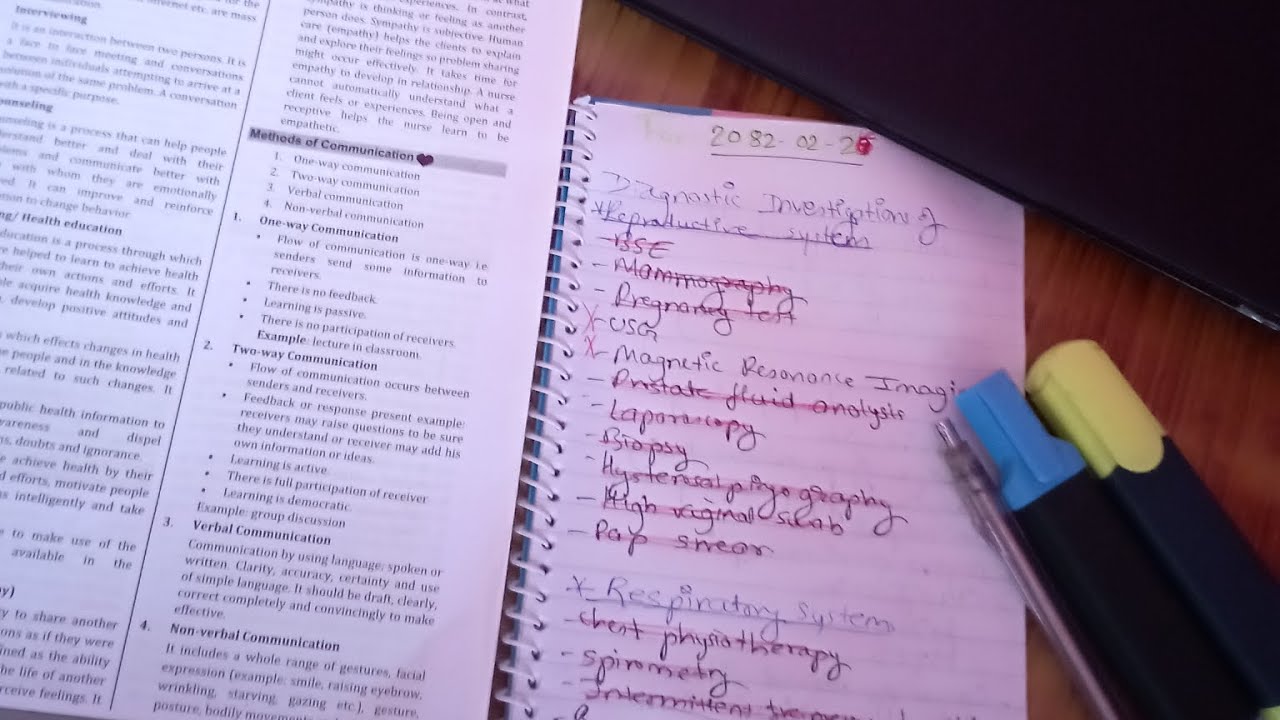 nternet etc. are mass
Interviewing
It is an interaction between two persons. It is
a face to face meeting and conversations
between individuals attempting to arrive at a
solution of the same problem. A conversation
with a specific purpose.
ounseling
unseling is a process that can help people
derstand better and deal with their
blems and communicate better with
with whom they are emotionally
ved. It can improve and reinforce
tion to change behavior
ng/ Health education
ducation is a process through which
re helped to learn to achieve health
their own actions and efforts. It
ple acquire health knowledge and
, develop positive attitudes and
s which effects changes in health
e people and in the knowledge
related to such changes. It
public health information to
wareness and dispel
s, doubts and ignorance.
e achieve health by their
d efforts, motivate people
ns intelligently and take
e to make use of the
available in the
y)
ty to share another
ons as if they were
ined as the ability
he life of another
rceive feelings. It
experiences. In contrast,
sympathy is thinking or feeling as another
person does. Sympathy is subjective. Human
care (empathy) helps the clients to explain
and explore their feelings so problem sharing
might occur effectively. It takes time for
empathy to develop in relationship. A nurse
cannot automatically understand what a
client feels or experiences. Being open and
receptive helps the nurse learn to be
empathetic.
Methods of Communication
1. One-way communication
2. Two-way communication
3. Verbal communication
4. Non-verbal communication
1. One-way Communication
• Flow of communication is one-way i.e
senders send some information to
receivers.
• There is no feedback.
• Learning is passive.
• There is no participation of receivers.
Example: lecture in classroom.
2. Two-way Communication
• Flow of communication occurs between
senders and receivers.
• Feedback or response present example:
receivers may raise questions to be sure
they understand or receiver may add his
own information or ideas.
• Learning is active.
• There is full participation of receiver
• Learning is democratic.
Example: group discussion
3. Verbal Communication
Communication by using language: spoken or
written. Clarity, accuracy, certainty and use
of simple language. It should be draft, clearly,
correct completely and convincingly to make
effective.
4. Non-verbal Communication
It includes a whole range of gestures, facial
expression (example: smile, raising eyebrow,
wrinkling, starving, gazing etc.), gesture,
posture, bodily movements
2082-02-2
Diagnostic Investigations of
* Reproductive system
- BSE
- Mammography
- Pregnancy test
X- USG
X- Magnetic Resonance Imagi
- Prostate fluid analysis
- Laparoscopy
- Biopsy
- Hysterosalpingography
- High vaginal swab
- Pap smear
* Respiratory system
- Chest physiotherapy
- Spirometry
- Intermittent